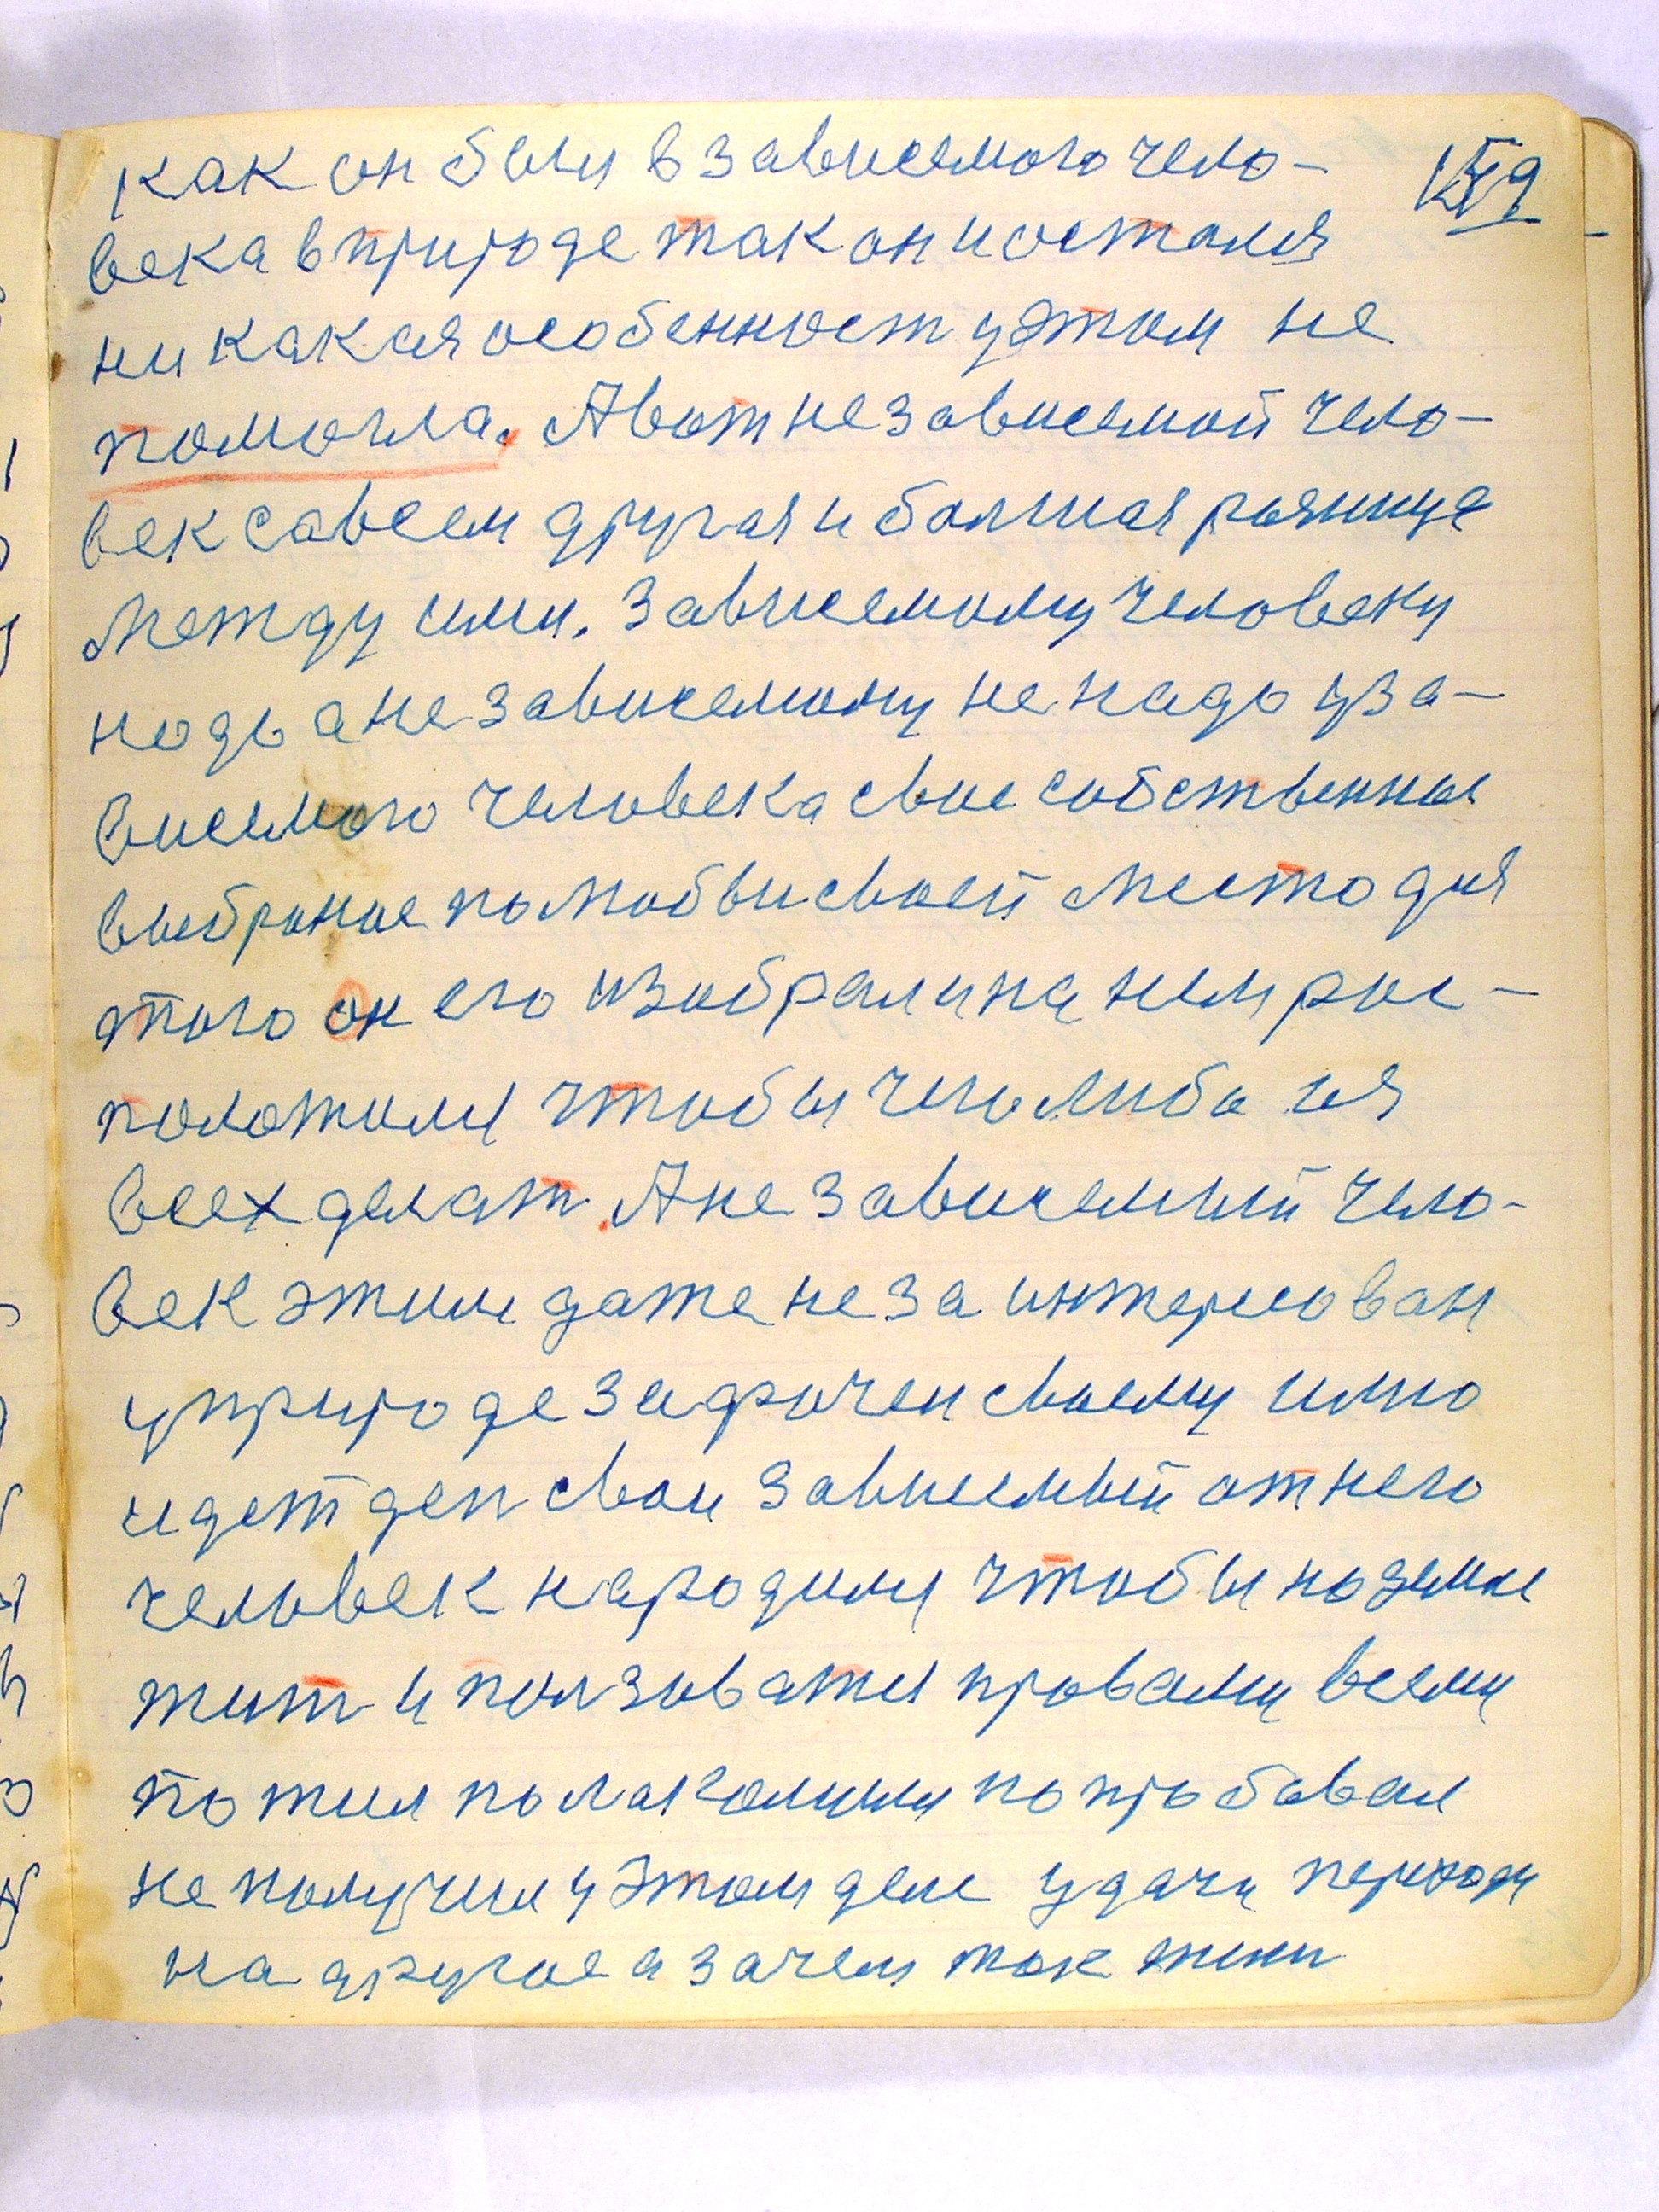 как он был в зависемого чело-
века в природе так он и остался
ни какая особенност у этом не
помогла. А вот независемой чело-
век савсем другая и болшая разница
между ими. Зависемому человеку
надо а не зависемому не надо у за-
висемого человека свое собственное
выбраное по любви своей место для
этого он его избрал и на нем рос-
положился чтобы чего либо ия
всех делат. А не зависемый чело-
век этим даже не за интересован
у природе за фрочен своему имю
идет ден свои зависемый от него
человек народился чтобы на земле
жит и ползоватся правами всеми
пожил полакомился попробовал
не получил у этом деле удачи переход
на другое а зачем так жит